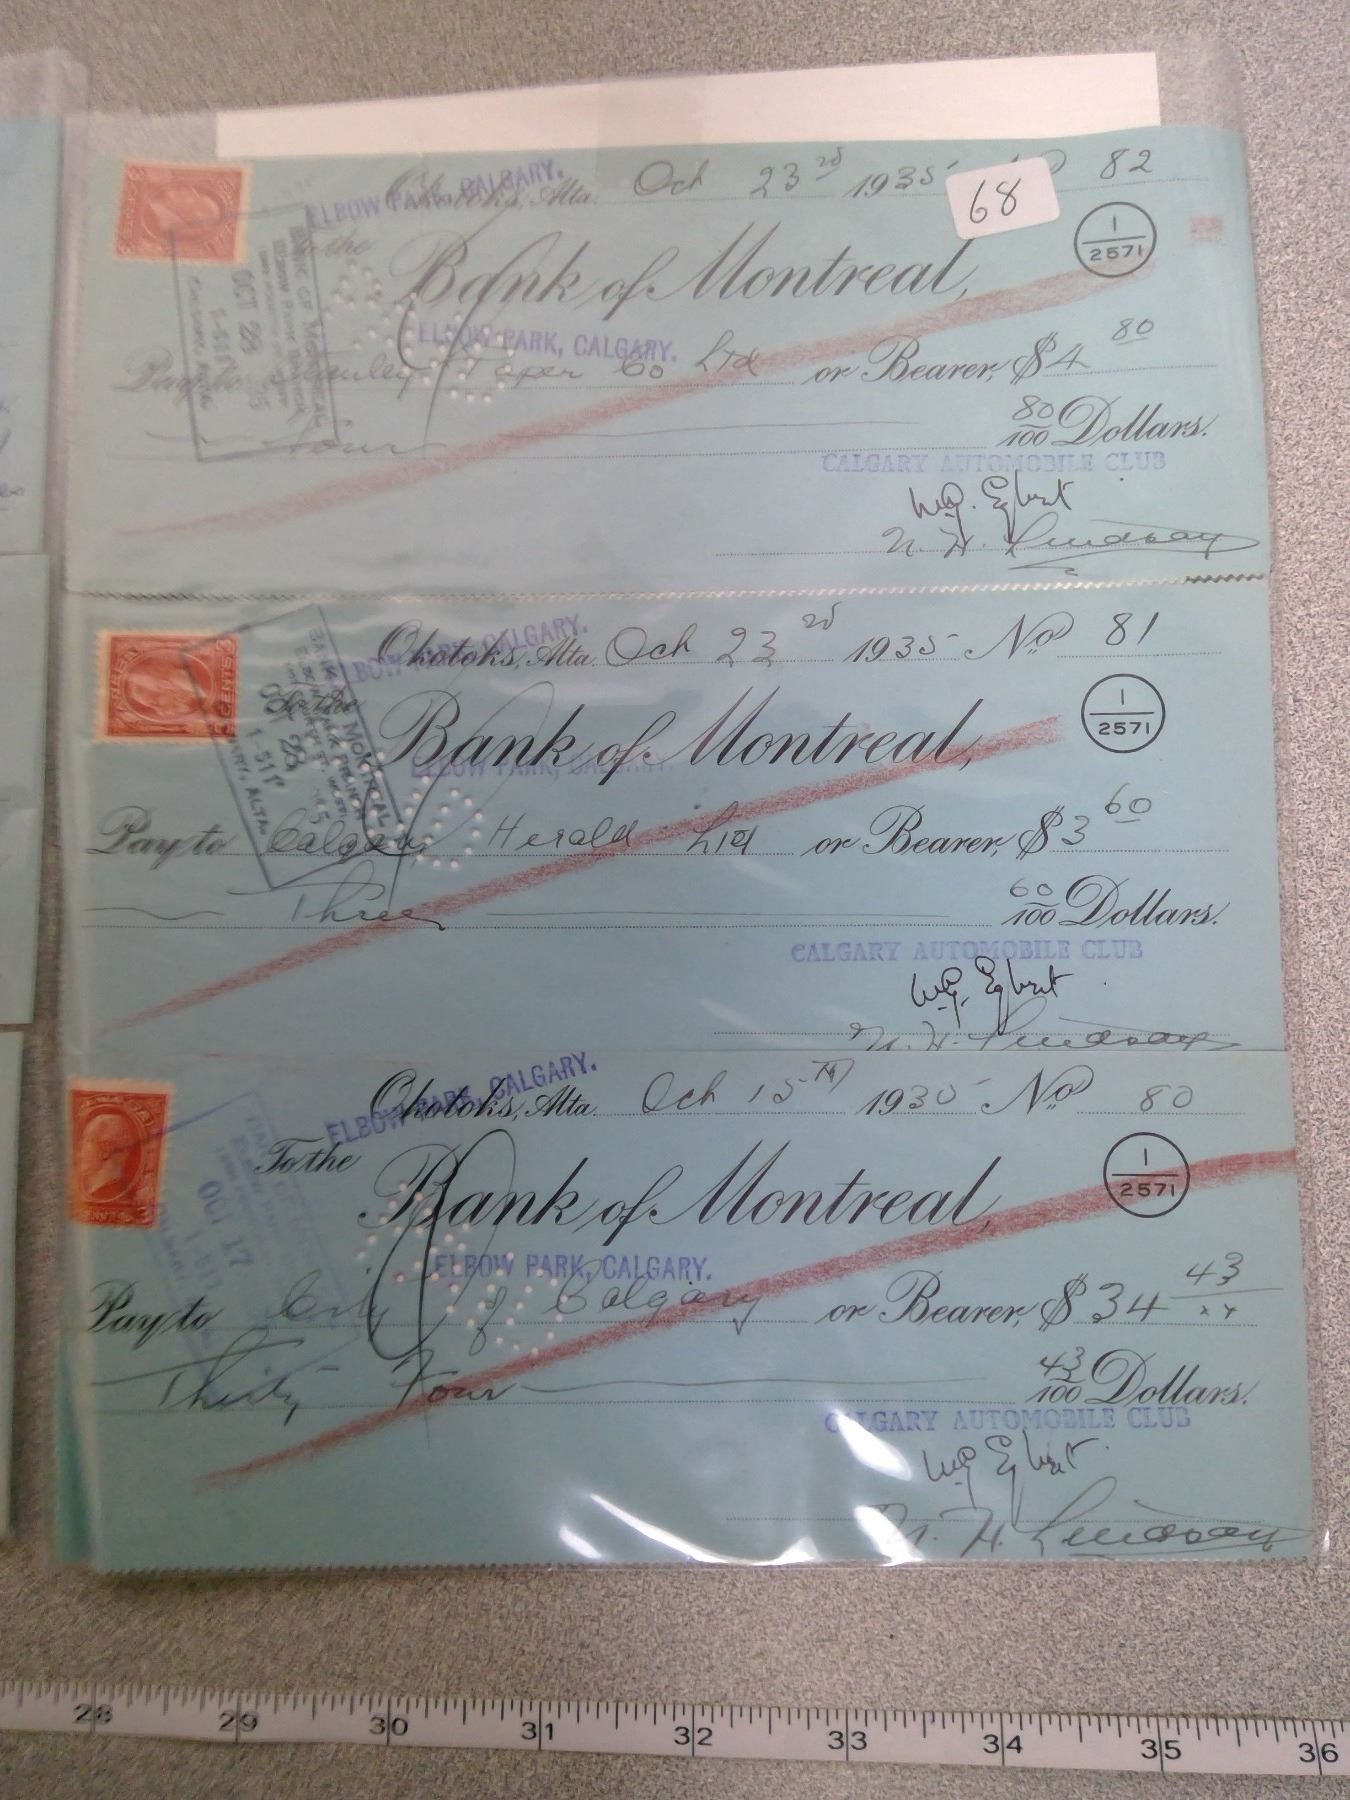 Okotoks, Alta. Oct 23rd 1935 No 82
ELBOW PARK, CALGARY.
68
To the
Bank of Montreal,
1
2571
ELBOW PARK, CALGARY.
Pay to Stanley Paper Co Ltd or Bearer, $4 80
Four 80/100 Dollars.
CALGARY AUTOMOBILE CLUB
W.G. Egbert
N. H. Lindsay
BANK OF MONTREAL
OCT 28
Okotoks, Alta. Oct 23rd 1935 No 81
ELBOW PARK, CALGARY.
To the
Bank of Montreal,
1
2571
ELBOW PARK, CALGARY.
Pay to Calgary Herald Ltd or Bearer, $3 60
Three 60/100 Dollars.
CALGARY AUTOMOBILE CLUB
W.G. Egbert
N. H. Lindsay
BANK OF MONTREAL
OCT 28
1-51 P
Okotoks, Alta. Oct 15th 1935 No 80
ELBOW PARK, CALGARY.
To the
Bank of Montreal,
1
2571
ELBOW PARK, CALGARY.
Pay to City of Calgary or Bearer, $34 43/xx
Thirty Four 43/100 Dollars.
CALGARY AUTOMOBILE CLUB
W.G. Egbert
N. H. Lindsay
OCT 17
28 29 30 31 32 33 34 35 36